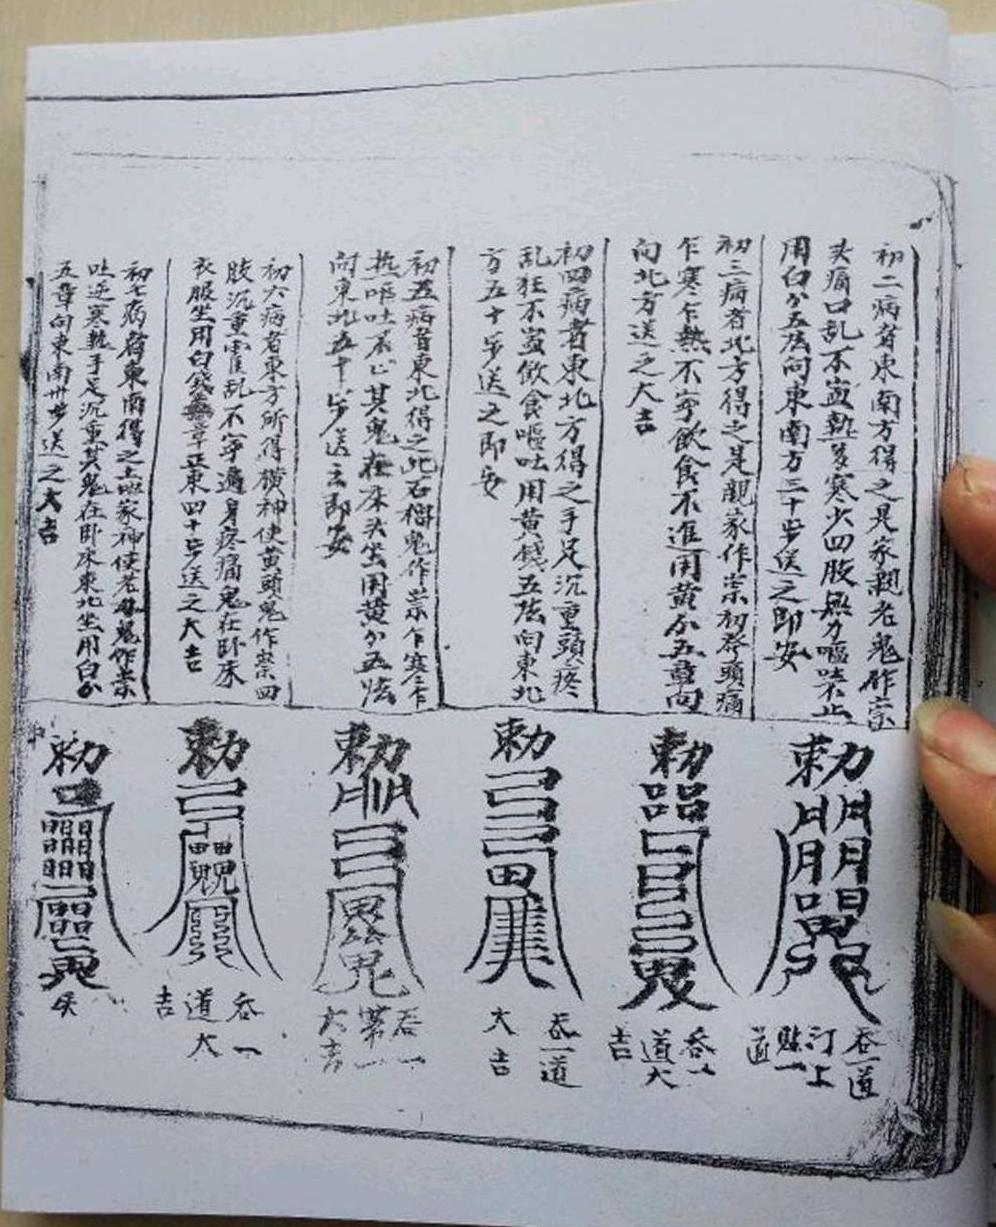 初二病者東南方得之是家親老鬼作祟
头痛口乱不寍熱多寒少四肢無力嘔吐不止
用白分五張向東南方三十步送之即安
初三病者北方得之是親家作祟初發頭痛
乍寒乍熱不寧飲食不進用黄分五章向
向北方送之大吉
初四病者東北方得之手足沉重頭疼
乱狂不寍飲食嘔吐用黄錢五張向東北
方五十步送之即安
初五病者東北得之此石榴鬼作祟乍寒乍
热嘔吐不止其鬼在床头坐用黄分五张
向東北五十步送之即安
初六病者東方所得横神使黄頭鬼作祟四
肢沉重霍乱不寧遍身疼痛鬼在卧床
衣服坐用白錢章正東四十步送之大吉
初七病者東南得之土地家神使老母鬼作祟
吐逆寒熱手足沉重其鬼在卧床東北坐用白分
五章向東南卅步送之大吉
勅
吞一道
门上
貼一
道
勅
吞一
道大
吉
勅
吞一道
大吉
勅
吞一
大吉
勅
吞一
道大
吉
勅